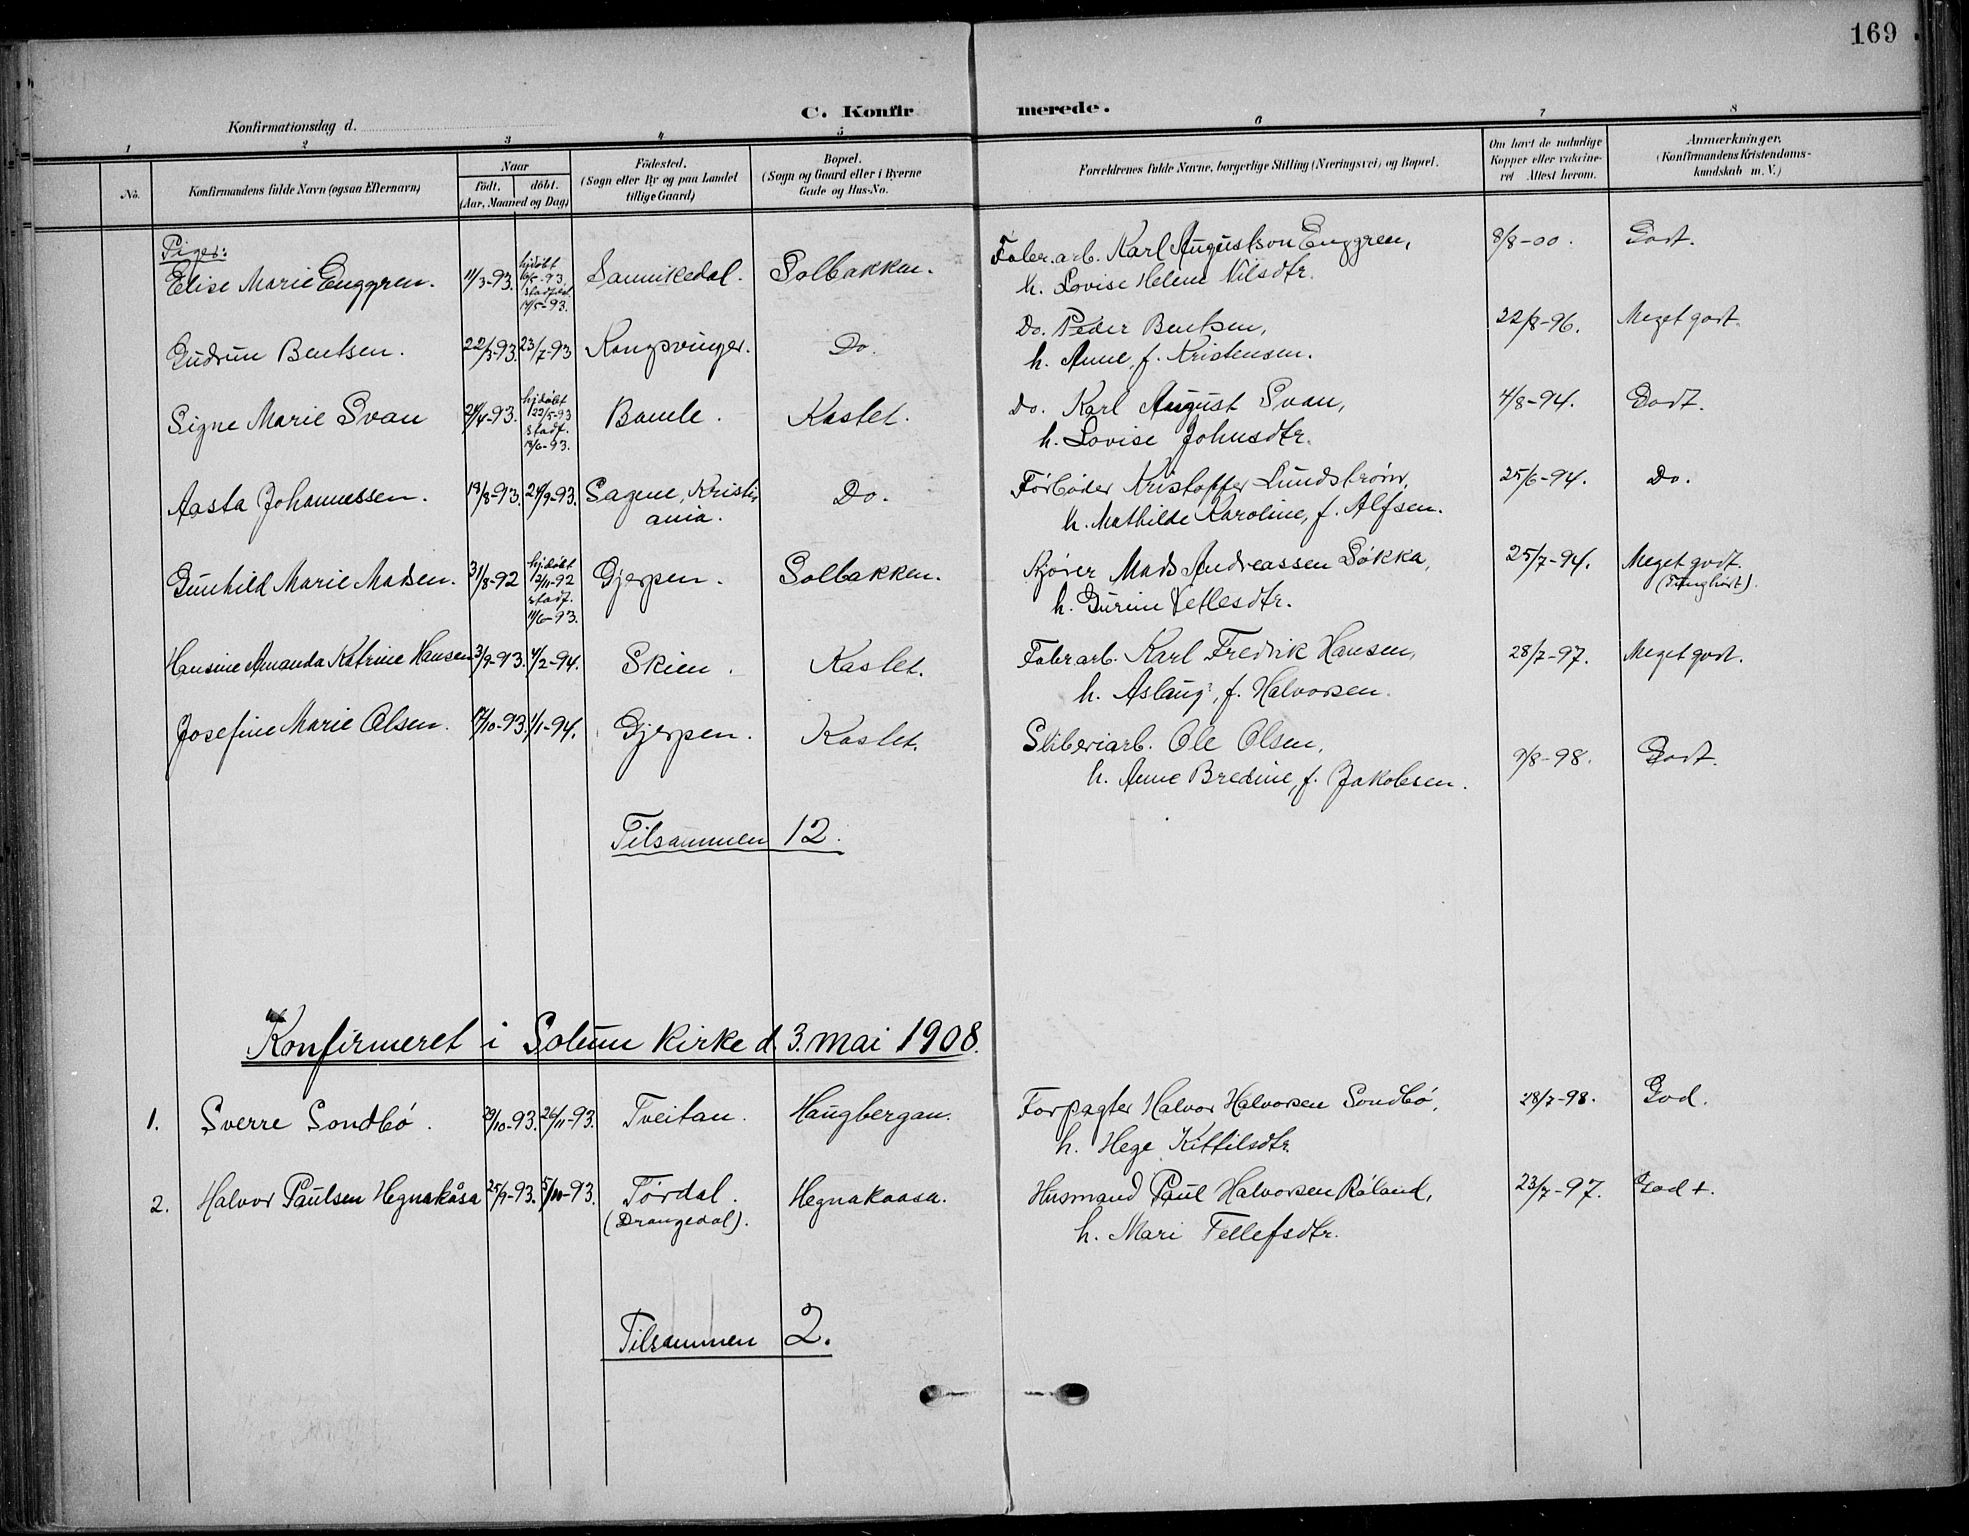 169
C. Konfirmerede.
Konfirmationsdag d.
1 2 3 4 5 6 7 8
No.
Konfirmandens fulde Navn (ogsaa Efternavn)
Naar
født. døbt.
(Aar, Maaned og Dag)
Fødested.
(Sogn eller By og paa Landet
tillige Gaard)
Bopæl.
(Sogn og Gaard eller i Byerne
Gade og Hus-No.
Forældrenes fulde Navne, borgerlige Stilling (Næringsvei) og Bopæl.
Om havt de naturlige
Kopper eller vakcine-
ret Attest herom.
Anmærkninger.
(Konfirmandens Kristendoms-
kundskab m. V.)
Piger:
Elise Marie Enggren. 11/3-93. hjdøbt 6/5-93. stadfest 14/5-93. Sannikedal. Solbakken. Fabr.arb. Karl Augustson Enggren, 8/8-00. Godt.
h. Lovise Helene Nilsdtr.
Gudrun Bentsen. 22/3-93. 23/7-93 Kongsvinger. Do. Do. Peder Bentsen, 22/8-96. Meget godt.
h. Anne, f. Kristensen.
Signe Marie Svan 24/4-93. hjdøbt 22/5-93 stadf. 18/6-93. Bamle. Kastet. Do. Karl August Svan, 4/8-94. Godt.
h. Lovise Johnsdtr.
Aasta Johannessen. 18/8-93. 24/9-93. Sagene, Kristi- Do. Førbøder Kristoffer Lundstrøm, 25/6-94. Do.
ania. h. Mathilde Karoline, f. Alfsen.
Gunhild Marie Madsen. 31/8-92 hjdøbt 12/11-92 stadf. 11/6-93. Gjerpen. Solbakken. Kjører Mads Andreassen Løkka, 25/7-94. Meget godt.
(Tunghørt).
h. Gurine Vetlesdtr.
Hansine Amanda Katrine Hansen 3/9-93. 4/2-94. Skien. Kastet. Fabr.arb. Karl Fredrik Hansen, 28/7-97. Meget godt.
h. Aslaug, f. Halvorsen.
Josefine Marie Olsen. 17/10-93. 1/1-94. Gjerpen. Kastet. Sliberiarb. Ole Olsen, 9/8-98. Godt.
h. Anne Bredine, f. Jakobsen.
Tilsammen 12.
Konfirmeret i Solum kirke d. 3. mai 1908.
1. Sverre Sondbø. 29/10-93. 26/11-93. Tveitan. Haugbergan. Forpagter Halvor Halvorsen Sondbø, 28/7-98. God.
h. Hege Kittilsdtr.
2. Halvor Paulsen Hegnakåsa 25/9-93. 5/11-93. Tørdal. Hegnakaasa. Husmand Paul Halvorsen Røland, 23/7-97. God +.
(Drangedal). h. Mari Tellefsdtr.
Tilsammen 2.